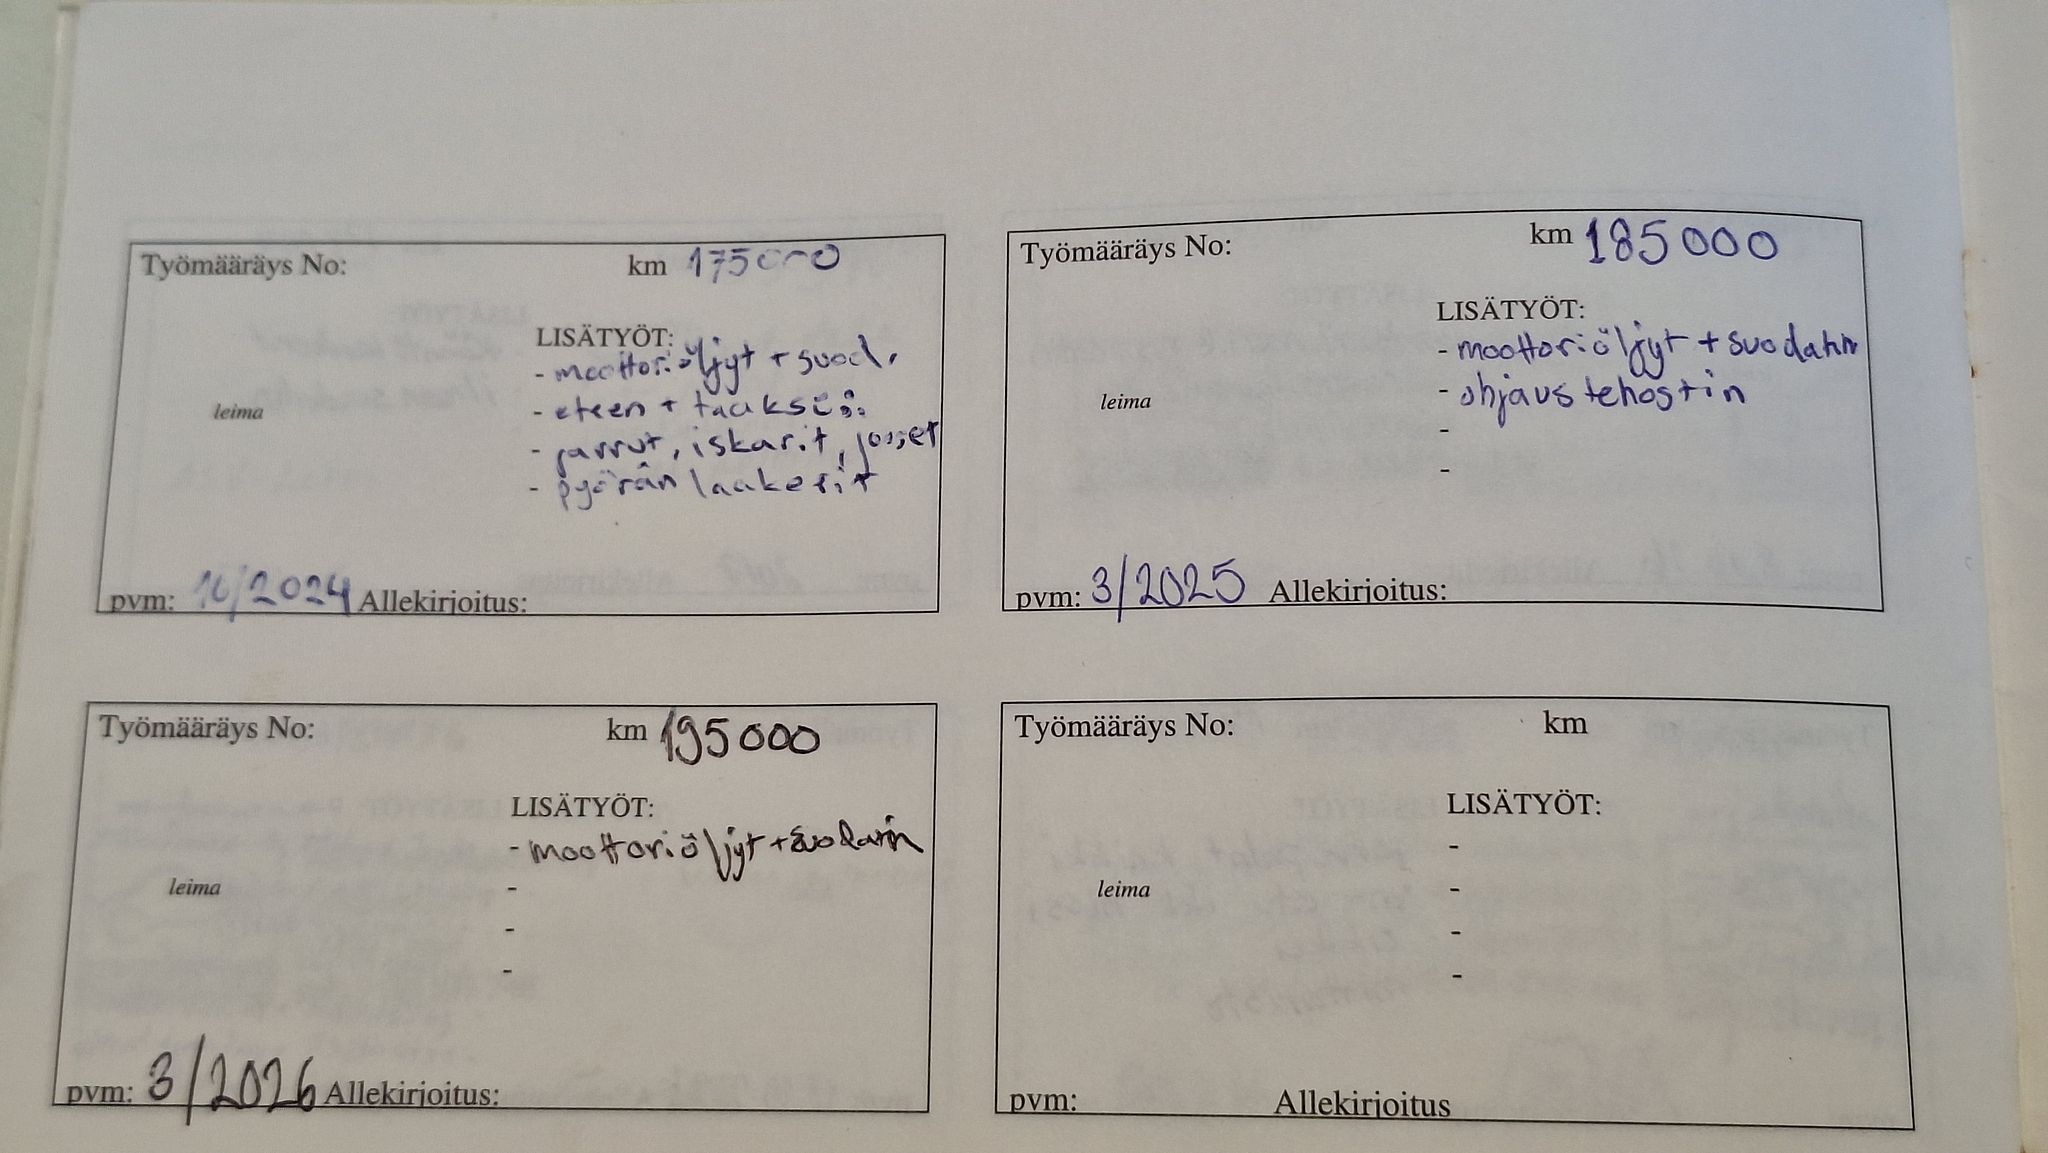 Työmääräys No: km 175000
LISÄTYÖT:
- moottoriöljyt + suod.
leima
- eteen + taakse:
- jarrut, iskarit, jouset
- pyörän laakerit
pvm: 10/2024 Allekirjoitus:
Työmääräys No: km 185000
LISÄTYÖT:
- moottoriöljyt + suodatin
leima
- ohjaustehostin
-
-
pvm: 3/2025 Allekirjoitus:
Työmääräys No: km 195000
LISÄTYÖT:
- moottoriöljyt + suodatin
leima
-
-
-
pvm: 3/2026 Allekirjoitus:
Työmääräys No: km
LISÄTYÖT:
-
leima
-
-
-
pvm: Allekirjoitus